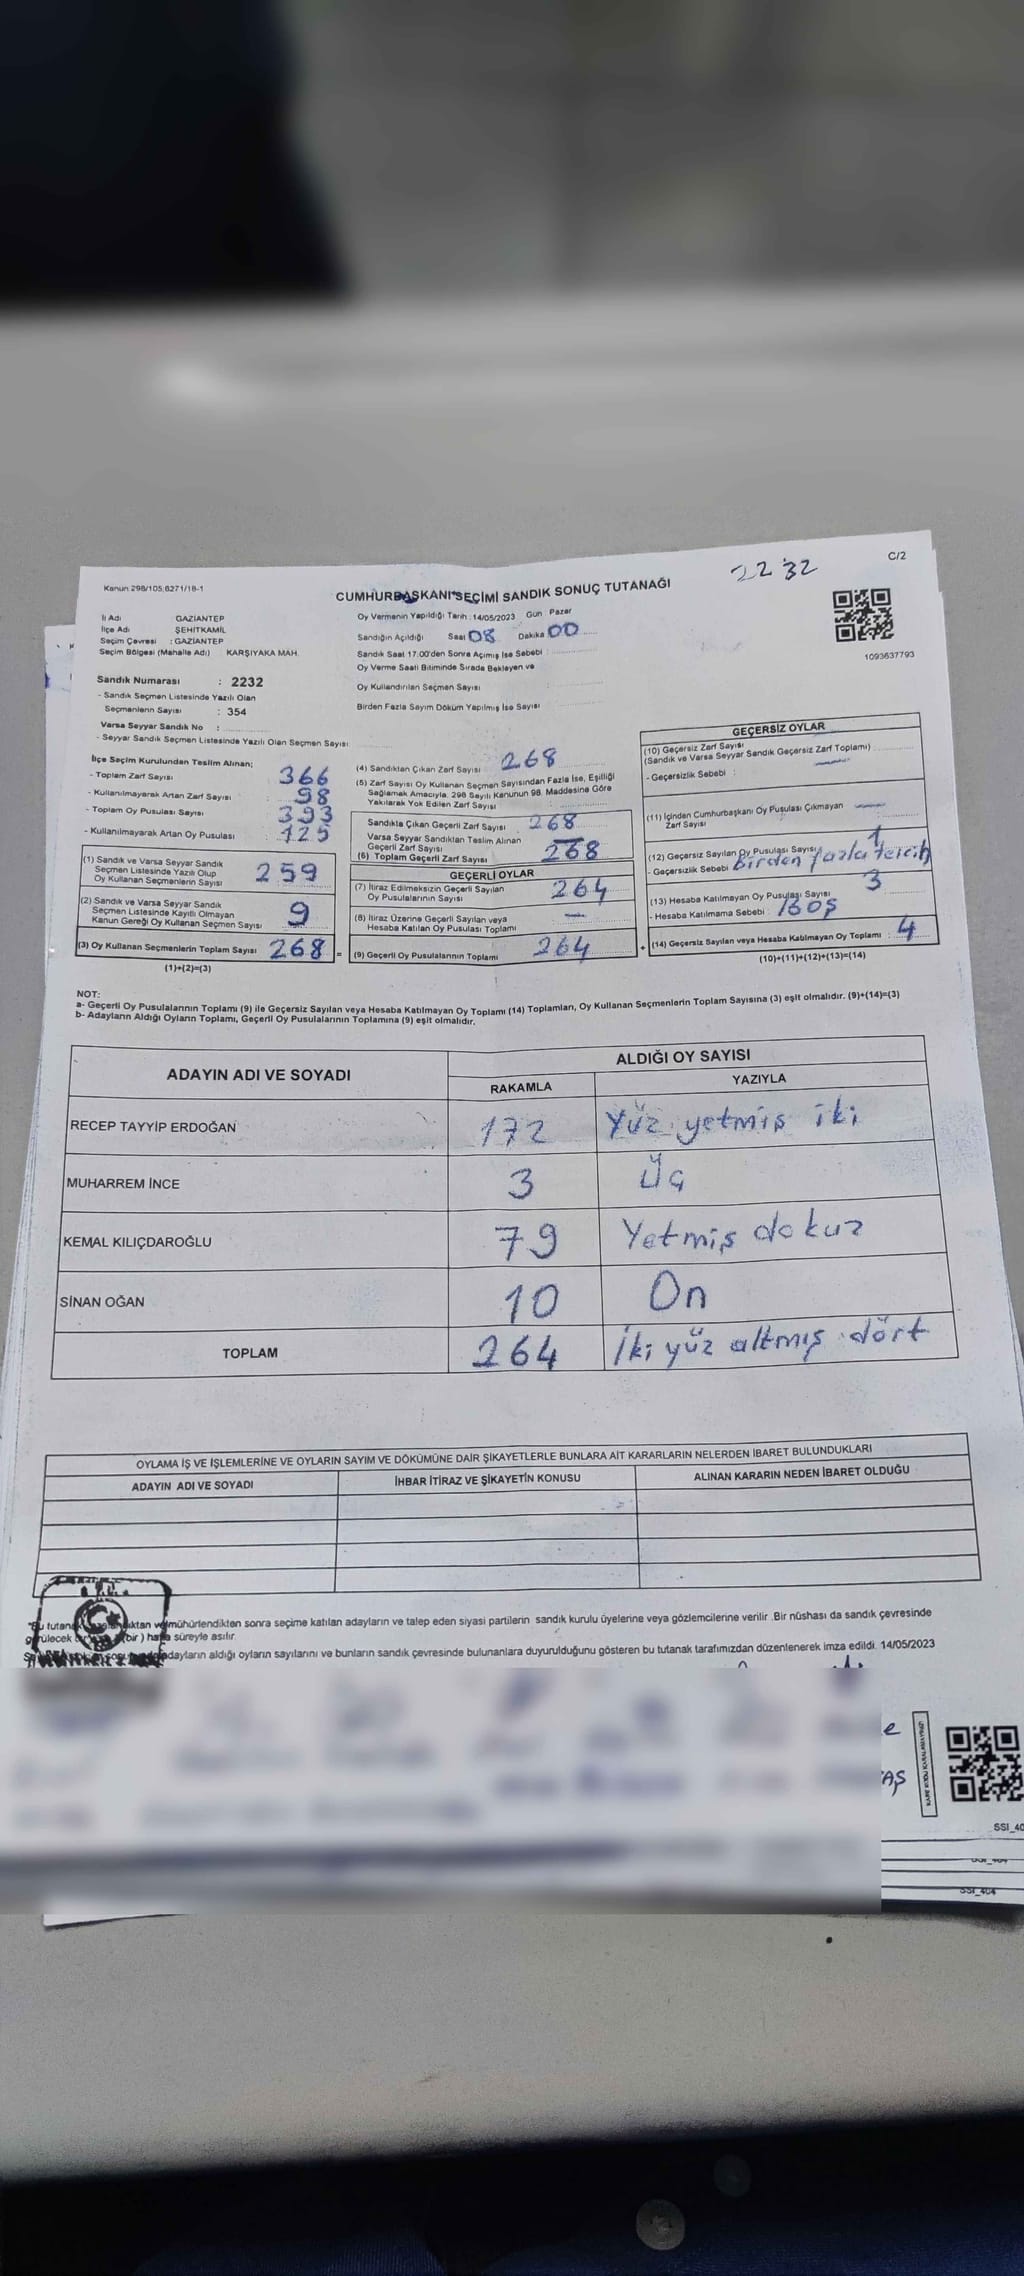 C/2
2232
Kanun 298/105;6271/18-1
CUMHURBAŞKANI SEÇİMİ SANDIK SONUÇ TUTANAĞI
İl Adı GAZİANTEP
İlçe Adı ŞEHİTKAMİL
Seçim Çevresi : GAZİANTEP
Seçim Bölgesi (Mahalle Adı) KARŞIYAKA MAH.
Oy Vermenin Yapıldığı Tarih : 14/05/2023 Gün : Pazar
Sandığın Açıldığı Saat 08 Dakika 00
Sandık Saat 17:00'den Sonra Açılmış İse Sebebi :
Oy Verme Saati Bitiminde Sırada Bekleyen ve
Oy Kullandırılan Seçmen Sayısı
Birden Fazla Sayım Döküm Yapılmış İse Sayısı
1093637793
Sandık Numarası : 2232
- Sandık Seçmen Listesinde Yazılı Olan
Seçmenlerin Sayısı : 354
Varsa Seyyar Sandık No :
- Seyyar Sandık Seçmen Listesinde Yazılı Olan Seçmen Sayısı:
İlçe Seçim Kurulundan Teslim Alınan;
- Toplam Zarf Sayısı : 366
- Kullanılmayarak Artan Zarf Sayısı : 98
- Toplam Oy Pusulası Sayısı : 393
- Kullanılmayarak Artan Oy Pusulası : 125
(1) Sandık ve Varsa Seyyar Sandık
Seçmen Listesinde Yazılı Olup
Oy Kullanan Seçmenlerin Sayısı 259
(2) Sandık ve Varsa Seyyar Sandık
Seçmen Listesinde Kayıtlı Olmayan
Kanun Gereği Oy Kullanan Seçmen Sayısı 9
(3) Oy Kullanan Seçmenlerin Toplam Sayısı 268 =
(1)+(2)=(3)
(4) Sandıktan Çıkan Zarf Sayısı 268
(5) Zarf Sayısı Oy Kullanan Seçmen Sayısından Fazla İse, Eşitliği
Sağlamak Amacıyla, 298 Sayılı Kanunun 98. Maddesine Göre
Yakılarak Yok Edilen Zarf Sayısı
Sandıkta Çıkan Geçerli Zarf Sayısı 268
Varsa Seyyar Sandıktan Teslim Alınan
Geçerli Zarf Sayısı —
(6) Toplam Geçerli Zarf Sayısı 268
GEÇERLİ OYLAR
(7) İtiraz Edilmeksizin Geçerli Sayılan
Oy Pusulalarının Sayısı 264
(8) İtiraz Üzerine Geçerli Sayılan veya
Hesaba Katılan Oy Pusulası Toplamı —
(9) Geçerli Oy Pusulalarının Toplamı 264 +
GEÇERSİZ OYLAR
(10) Geçersiz Zarf Sayısı
(Sandık ve Varsa Seyyar Sandık Geçersiz Zarf Toplamı) —
- Geçersizlik Sebebi :
(11) İçinden Cumhurbaşkanı Oy Pusulası Çıkmayan
Zarf Sayısı —
(12) Geçersiz Sayılan Oy Pusulası Sayısı 1
- Geçersizlik Sebebi Birden fazla tercih
(13) Hesaba Katılmayan Oy Pusulası Sayısı 3
- Hesaba Katılmama Sebebi : Boş
(14) Geçersiz Sayılan veya Hesaba Katılmayan Oy Toplamı : 4
(10)+(11)+(12)+(13)=(14)
NOT:
a- Geçerli Oy Pusulalarının Toplamı (9) ile Geçersiz Sayılan veya Hesaba Katılmayan Oy Toplamı (14) Toplamları, Oy Kullanan Seçmenlerin Toplam Sayısına (3) eşit olmalıdır. (9)+(14)=(3)
b- Adayların Aldığı Oyların Toplamı, Geçerli Oy Pusulalarının Toplamına (9) eşit olmalıdır.
ADAYIN ADI VE SOYADI ALDIĞI OY SAYISI
RAKAMLA YAZIYLA
RECEP TAYYİP ERDOĞAN 172 Yüz yetmiş iki
MUHARREM İNCE 3 Üç
KEMAL KILIÇDAROĞLU 79 Yetmiş dokuz
SİNAN OĞAN 10 On
TOPLAM 264 İki yüz altmış dört
OYLAMA İŞ VE İŞLEMLERİNE VE OYLARIN SAYIM VE DÖKÜMÜNE DAİR ŞİKAYETLERLE BUNLARA AİT KARARLARIN NELERDEN İBARET BULUNDUKLARI
ADAYIN ADI VE SOYADI İHBAR İTİRAZ VE ŞİKAYETİN KONUSU ALINAN KARARIN NEDEN İBARET OLDUĞU
mühürlendikten sonra seçime katılan adayların ve talep eden siyasi partilerin sandık kurulu üyelerine veya gözlemcilerine verilir .Bir nüshası da sandık çevresinde
(bir ) hafta süreyle asılır.
adayların aldığı oyların sayılarını ve bunların sandık çevresinde bulunanlara duyurulduğunu gösteren bu tutanak tarafımızdan düzenlenerek imza edildi. 14/05/2023
SSI_40
SSI_404